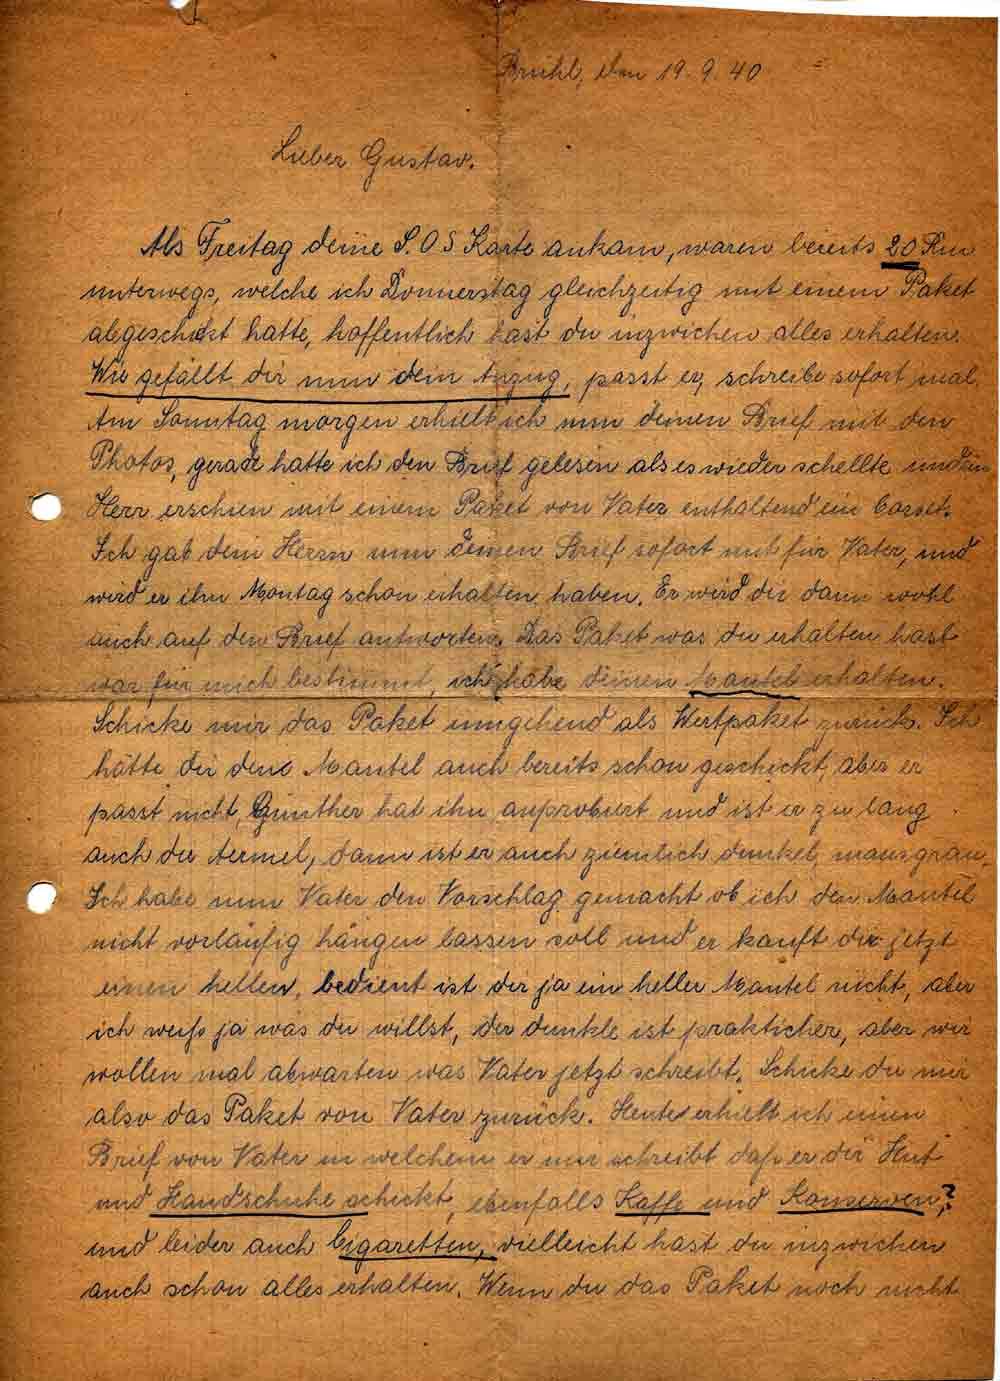 Brühl, den 19.9.40
Lieber Gustav.
Als Freitag deine S.O.S Karte ankam, waren bereits 20 Rm
unterwegs, welche ich Donnerstag gleichzeitig mit einem Paket
abgeschickt hatte, hoffentlich hast du inzwichen alles erhalten.
Wie gefällt dir nun dein Anzug, passt er, schreibe sofort mal.
Am Sonntag morgen erhielt ich nun deinen Brief mit den
Photos, gerade hatte ich den Brief gelesen als es wieder schellte und ein
Herr erschien mit einem Paket von Vater enthaltend ein Corsett.
Ich gab dem Herrn nun deinen Brief sofort mit für Vater, und
wird er ihn Montag schon erhalten haben. Er wird dir dann wohl
auch auf den Brief antworten. Das Paket was du erhalten hast
war für mich bestimmt, ich habe deinen Mantel erhalten.
Schicke mir das Paket umgehend als Wertpaket zurück. Ich
hätte dir den Mantel auch bereits schon geschickt, aber er
passt nicht, Günther hat ihn anprobiert und ist er zu lang
auch die Aermel, dann ist er auch ziemlich dunkel, mausgrau.
Ich habe nun Vater den Vorschlag gemacht ob ich den Mantel
nicht vorläufig hängen lassen soll und er kauft dir jetzt
einen hellen, bedient ist dir ja ein heller Mantel nicht, aber
ich weiß ja was du willst, der dunkle ist prakticher, aber wir
wollen mal abwarten was Vater jetzt schreibt. Schicke du mir
also das Paket von Vater zurück. Heute erhielt ich einen
Brief von Vater in welchem er mir schreibt daß er dir Hut
und Handschuhe schickt, ebenfalls Kaffe und Konserven,?
und leider auch Cigaretten, vielleicht hast du inzwichen
auch schon alles erhalten. Wenn du das Paket noch nicht